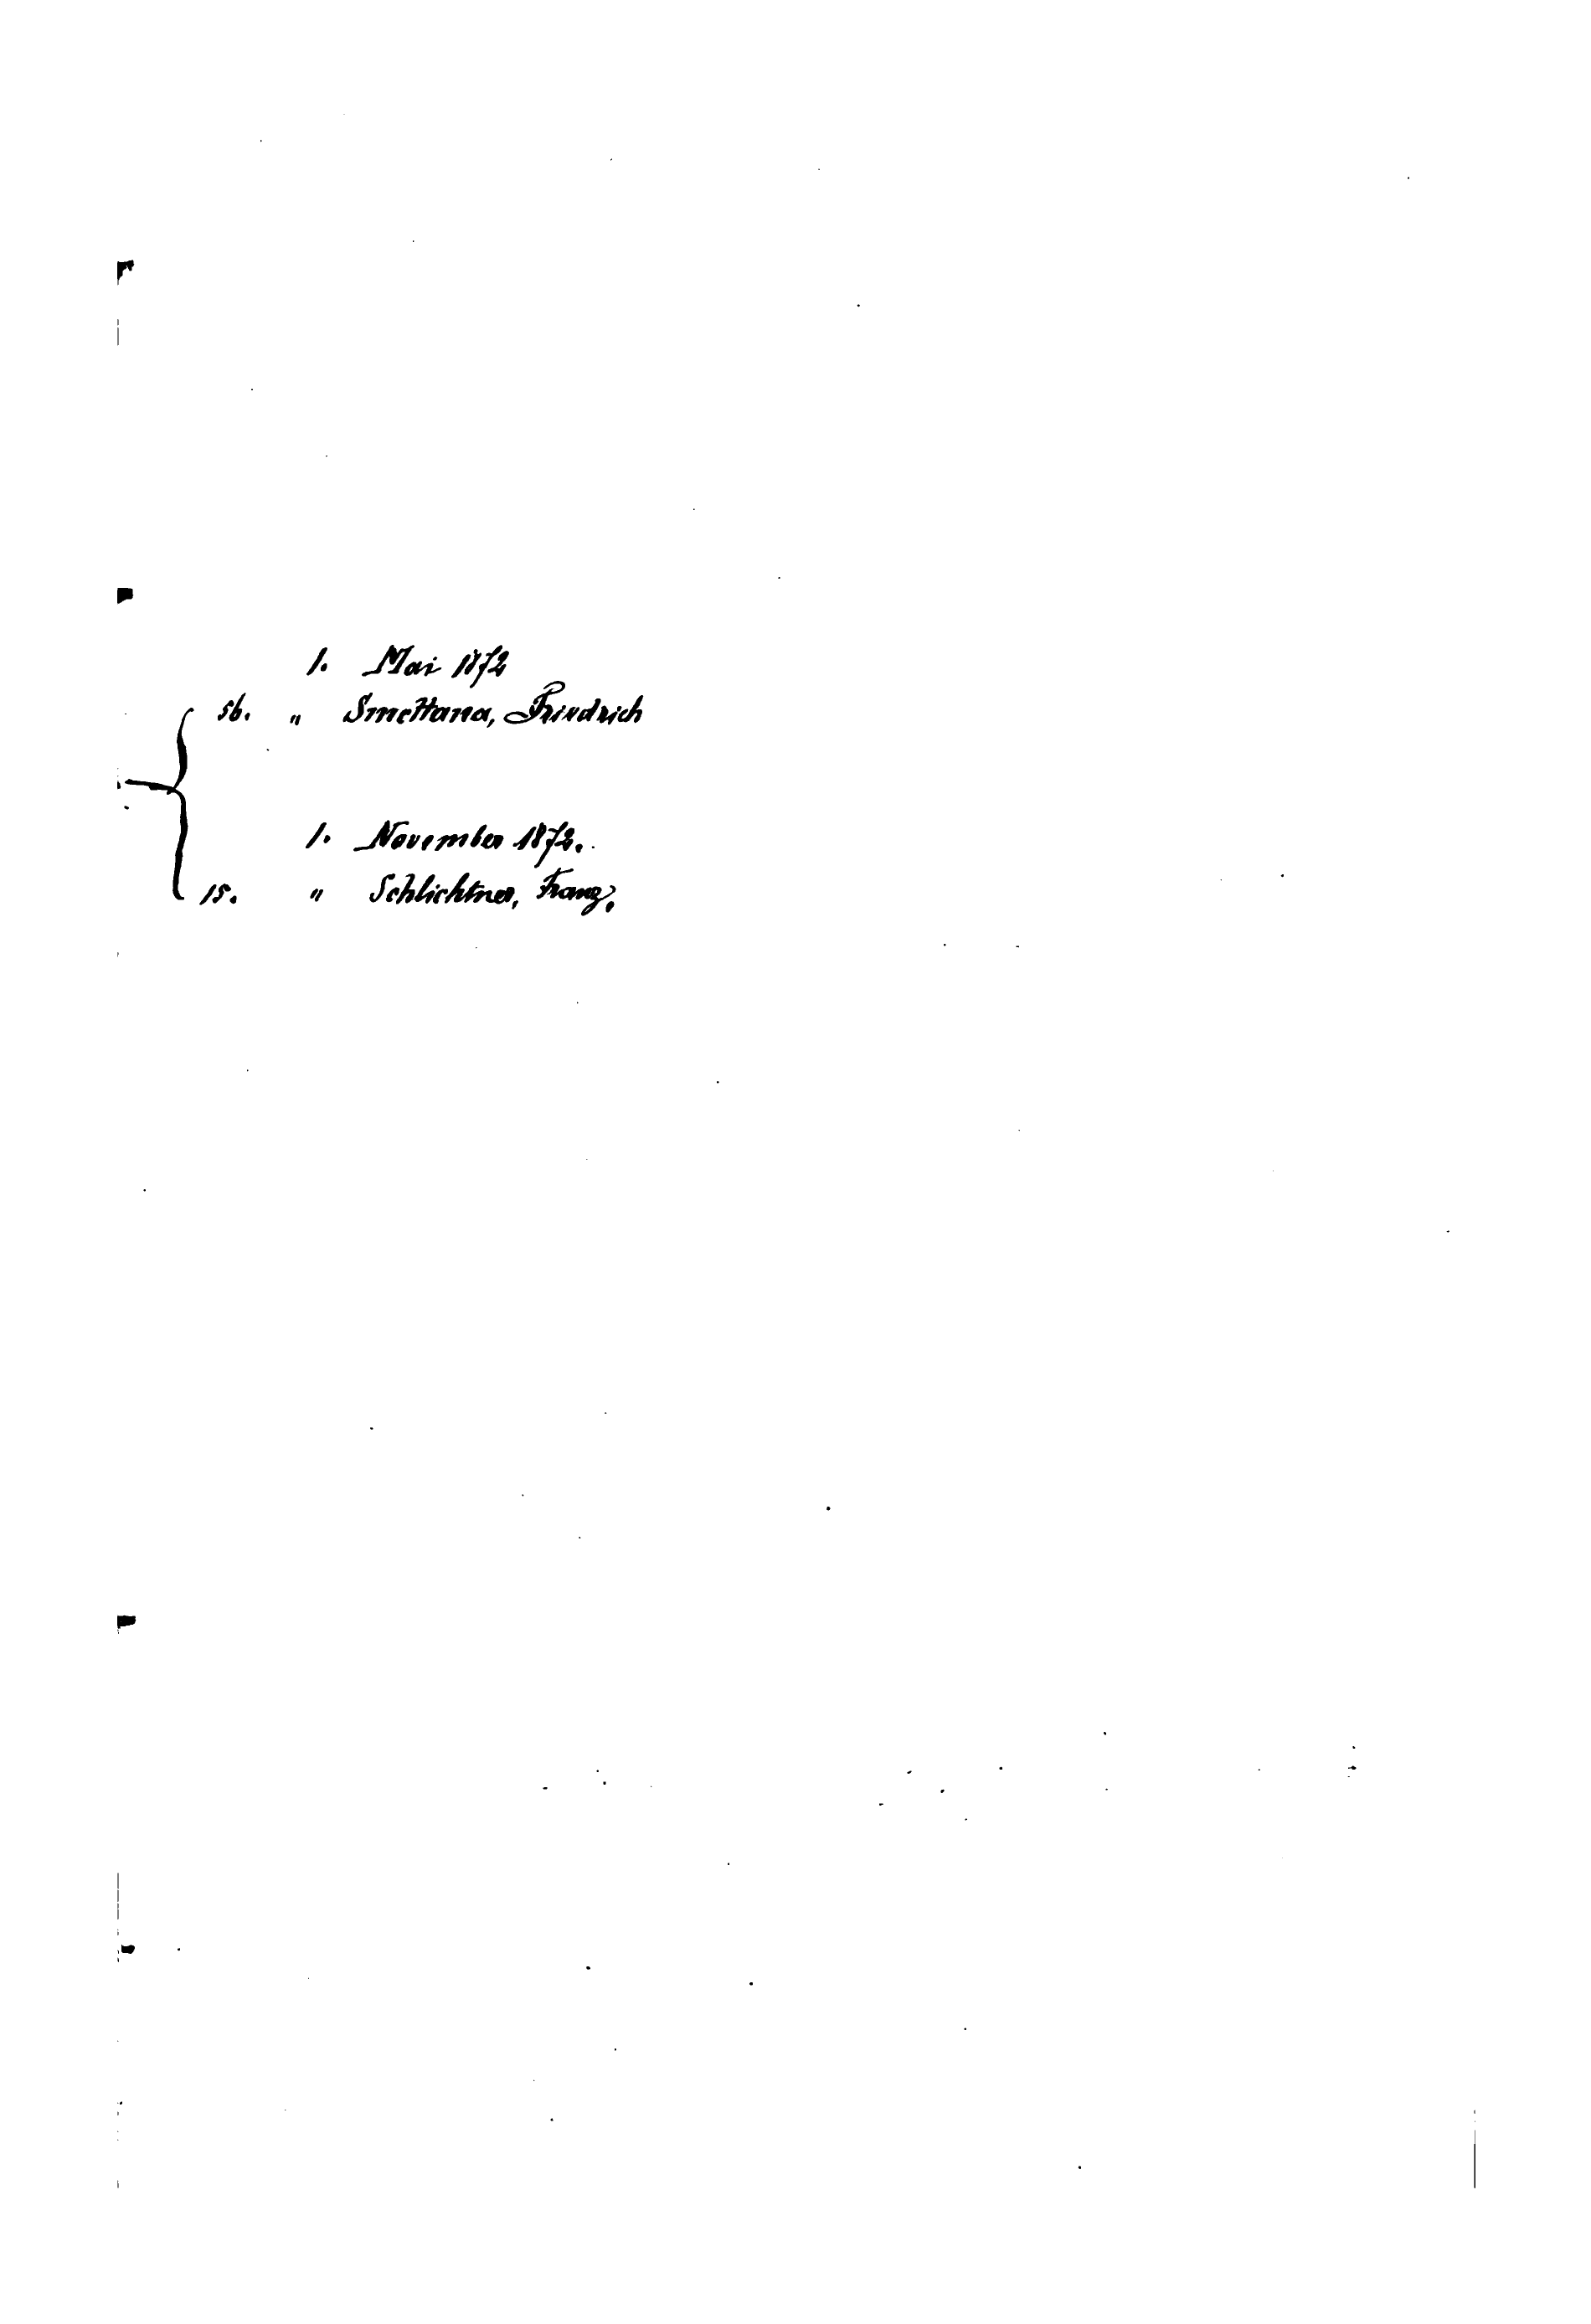 1. Mai 1872
56. " Smettana, Friedrich
1. November 1872.
15. " Schlichtner, Franz.